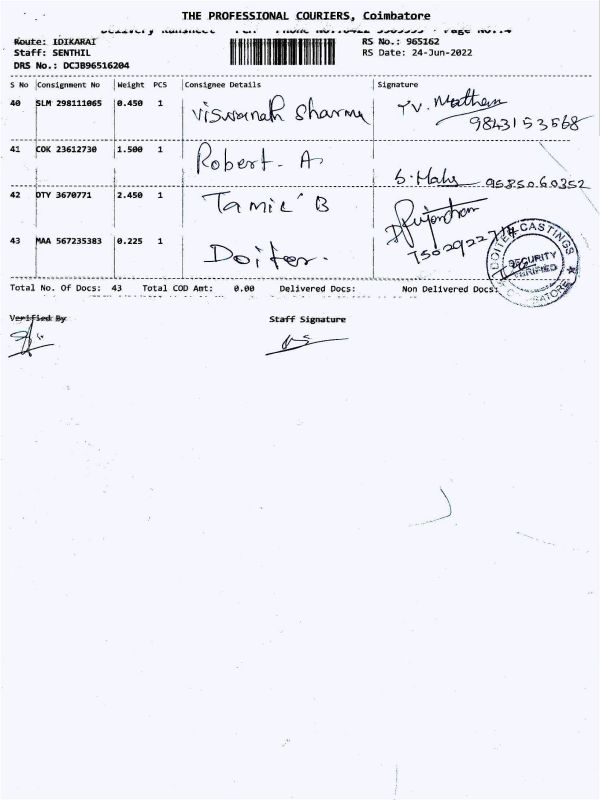 THE PROFESSIONAL COURIERS, Coimbatore
Delivery Runsheet
Route: IDIKARAI RS No.: 965162
Staff: SENTHIL RS Date: 24-Jun-2022
DRS No.: DCJB96516204
S No Consignment No Weight PCS Consignee Details Signature
40 SLM 298111065 0.450 1 Viswanath Sharma 9843153568
41 COK 23612730 1.500 1 Robert. A 9585060352
42 DTY 3670771 2.450 1 Tamil B
43 MAA 567235383 0.225 1 Doitec.
DOITEC CASTINGS
SECURITY
VERIFIED
Total No. Of Docs: 43 Total COD Amt: 0.00 Delivered Docs: Non Delivered Docs:
Verified By Staff Signature